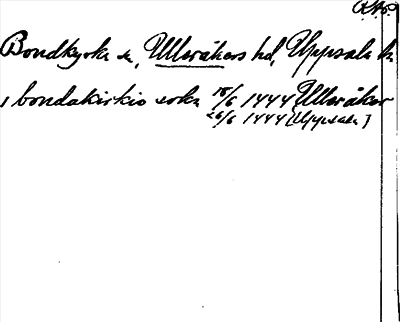 Bondkyrka sn, Ulleråkers hd, Uppsala län
i bondakirkio sokn 15/6 1444 Ulleråker
26/6 1444 [Uppsala]